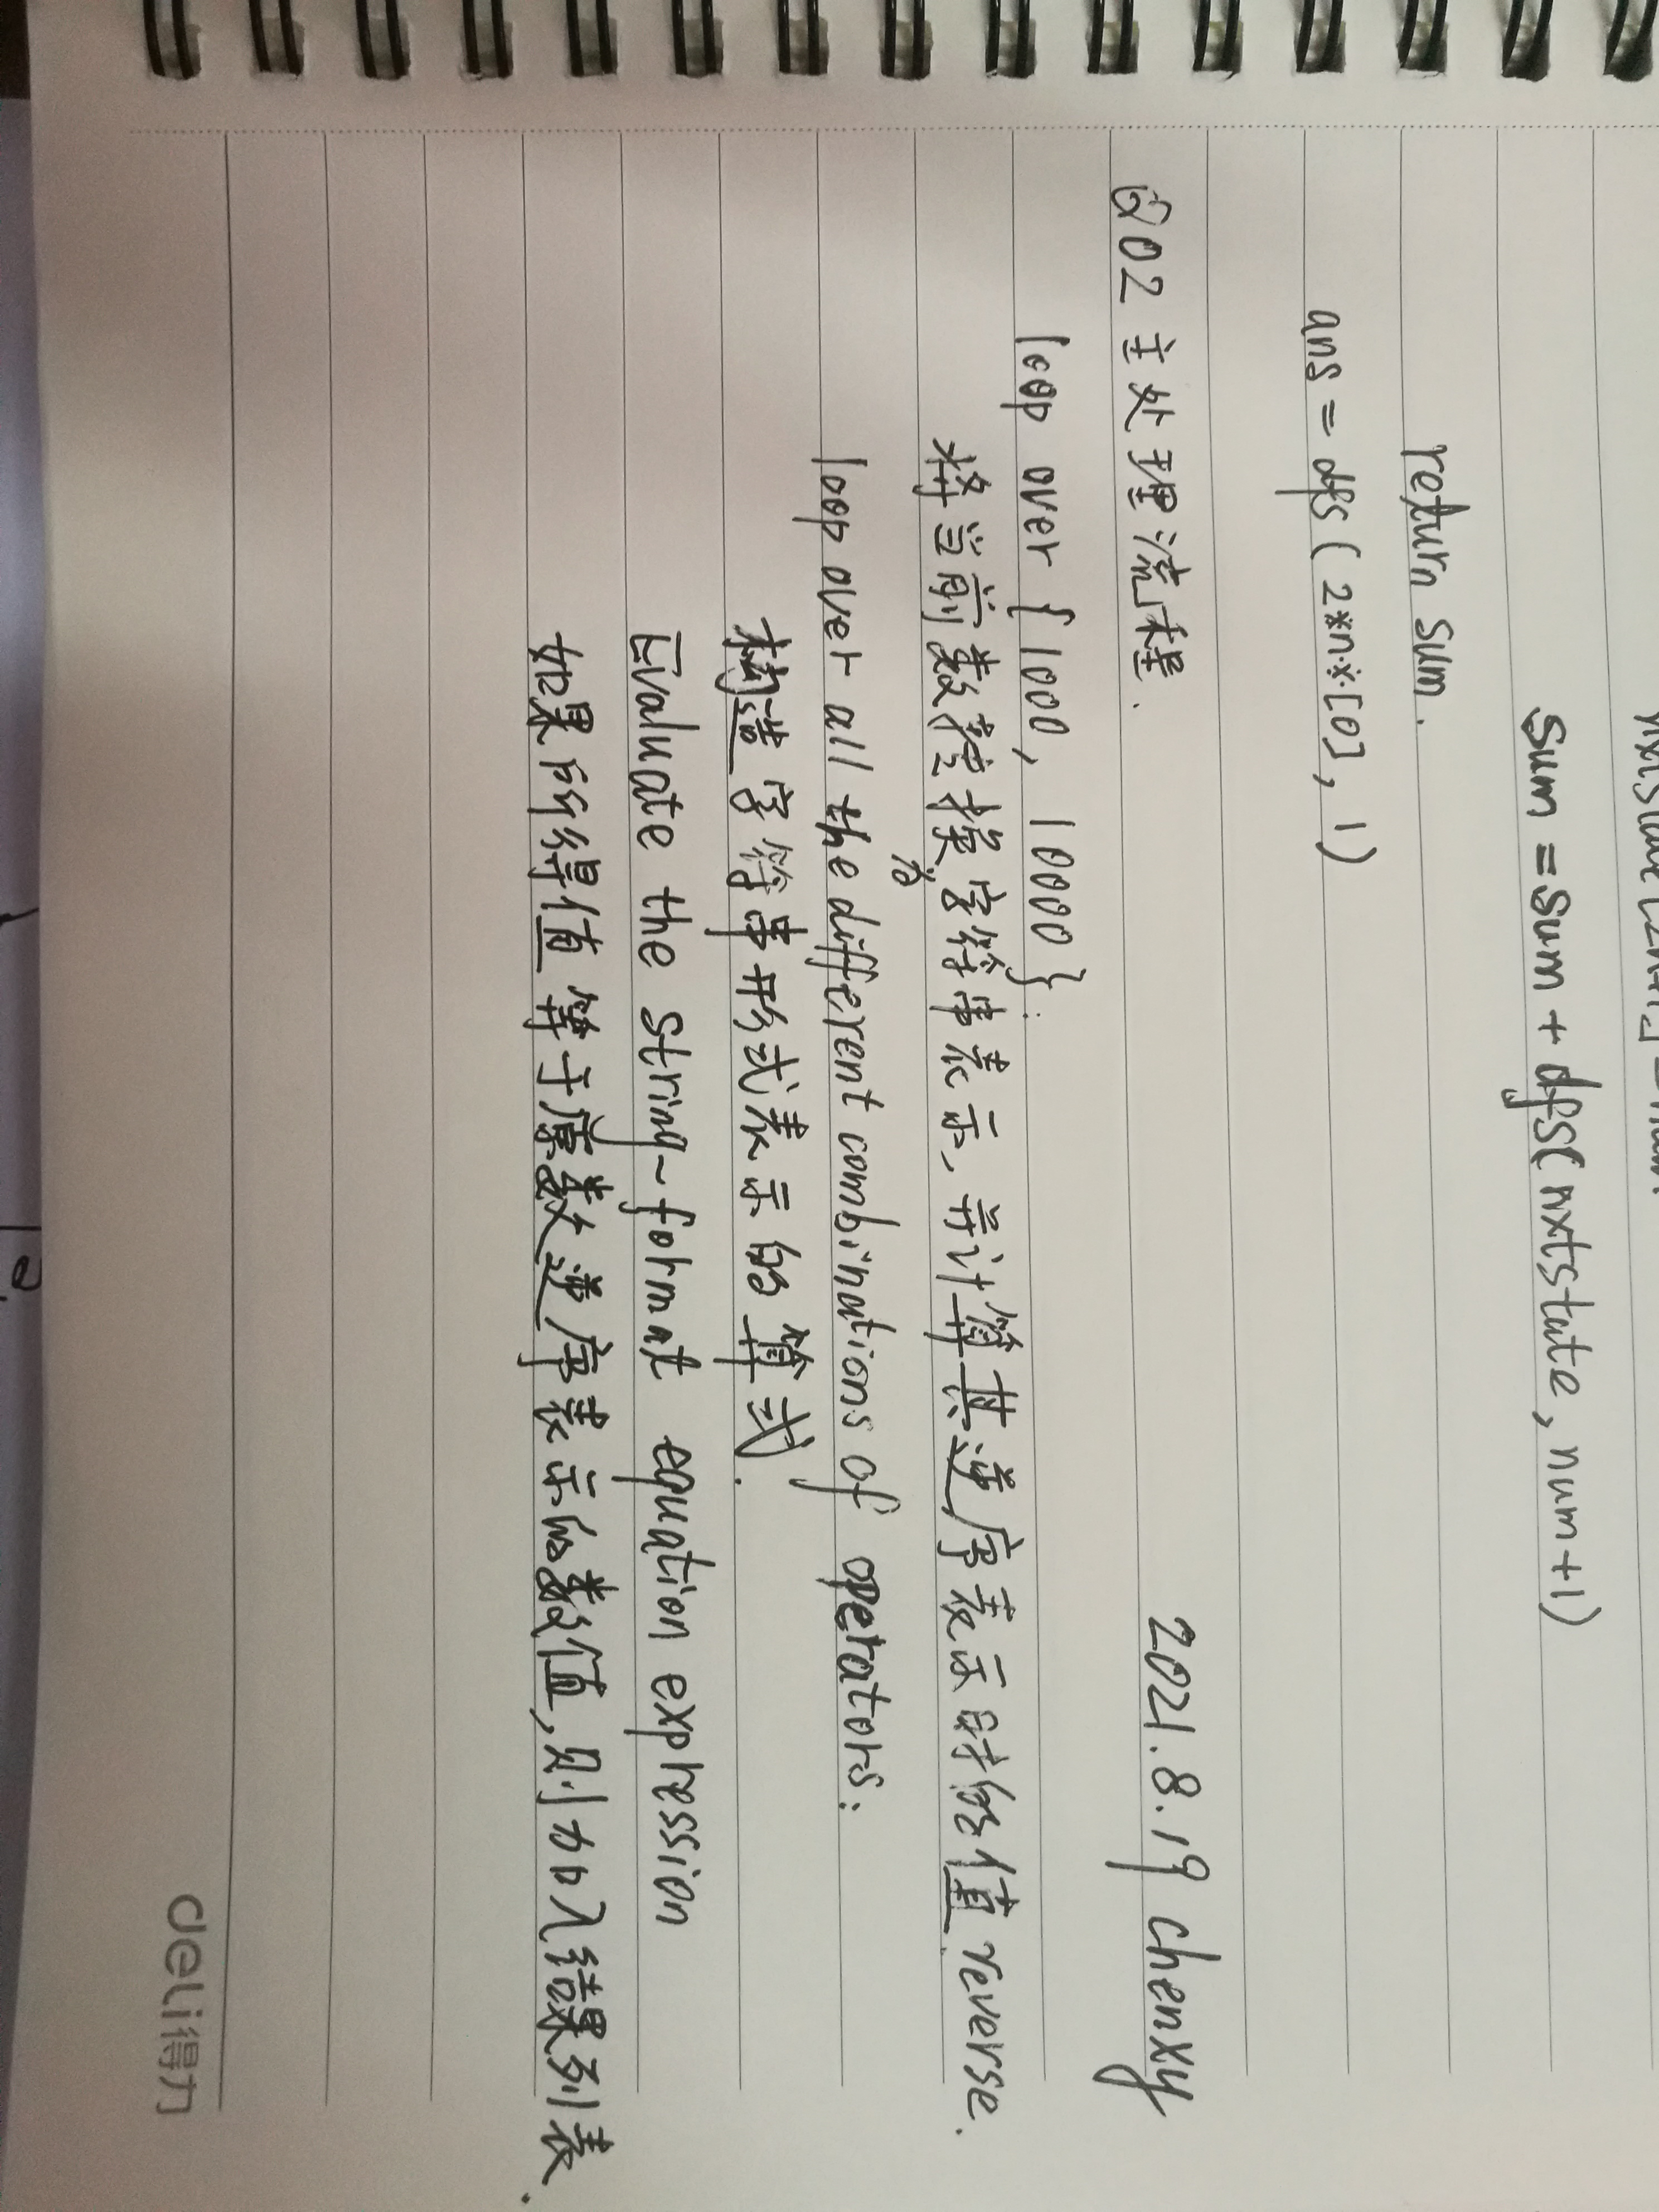 sum = sum + dfs( nxtstate, num+1)
return sum.
ans = dfs ( 2*n*[0], 1)
Q02 主处理流程. 2021.8.19 chenxy
loop over { 1000, 10000 }:
将当前数转换为字符串表示, 并计算其逆序表示时的值 reverse.
loop over all the different combinations of operators:
构造字符串形式表示的算式.
Evaluate the string-format equation expression
如果所得值等于原数逆序表示的数值,则加入结果列表.
deli得力